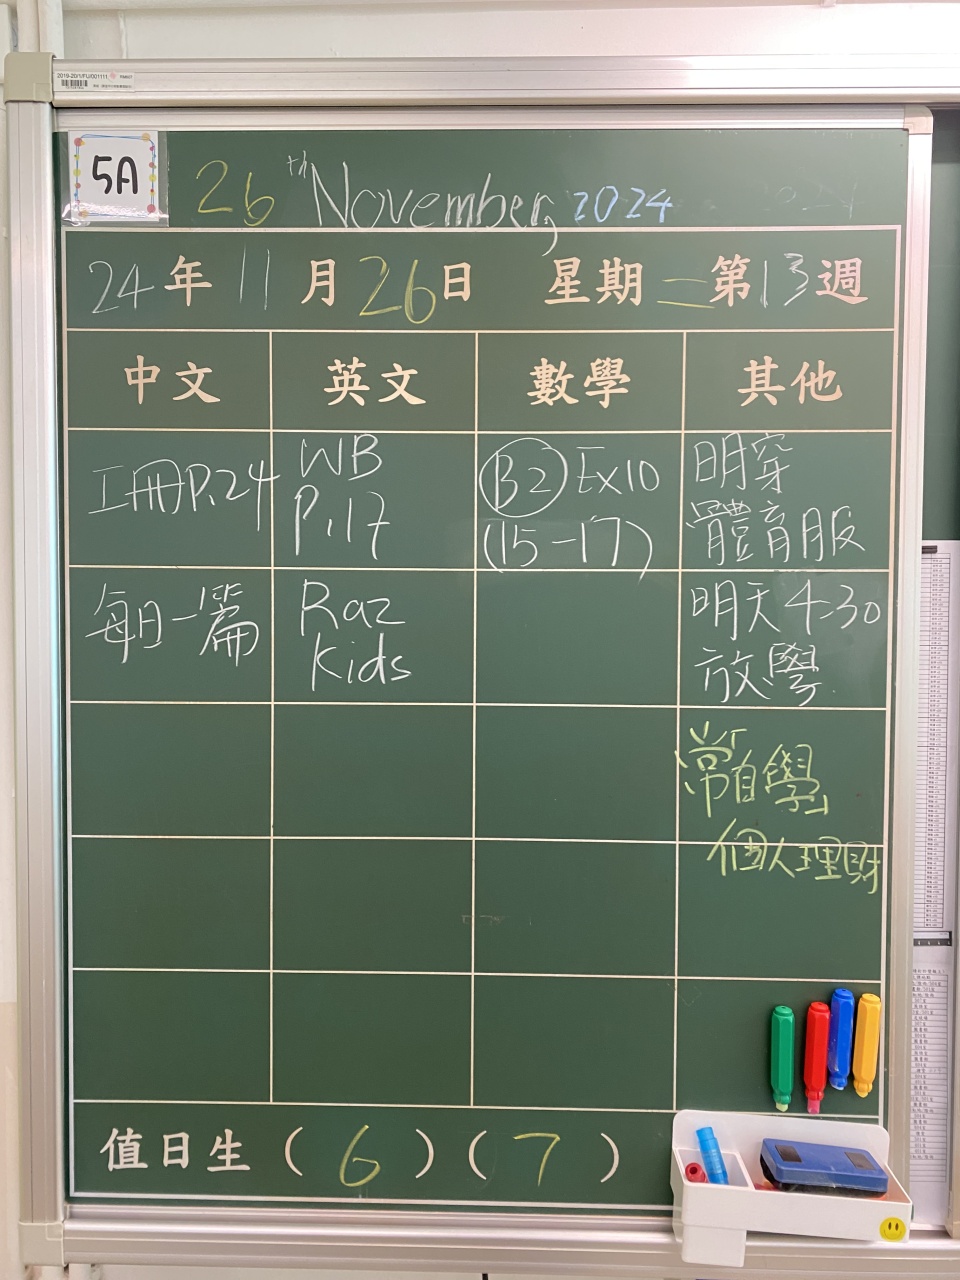 2019-20/1/FU/001111
5A
26th November, 2024
24年 11月26日 星期二第13週
中文 英文 數學 其他
工冊P.24
WB
P.17
B2 Ex10
(15-17)
明穿
體育服
每日一篇
Raz
Kids
明天4:30
放學
常自學
個人理財
值日生 (6)(7)